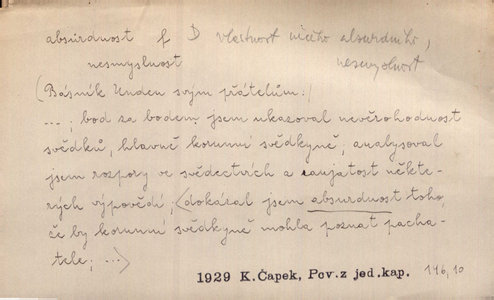 absurdnost f D vlastnost něčeho absurdního,
nesmyslnost nesmyslnost
(Básník Unden svým přátelům:)
...; bod za bodem jsem ukazoval nevěrohodnost
svědků, hlavně korunní svědkyně, analysoval
jsem rozpory ve svědectvích a zaujatost někte-
rých výpovědí; <dokázal jsem absurdnost toho,
že by korunní svědkyně mohla poznat pacha-
tele; ...>
1929 K.Čapek, Pov.z jed.kap. 116,10